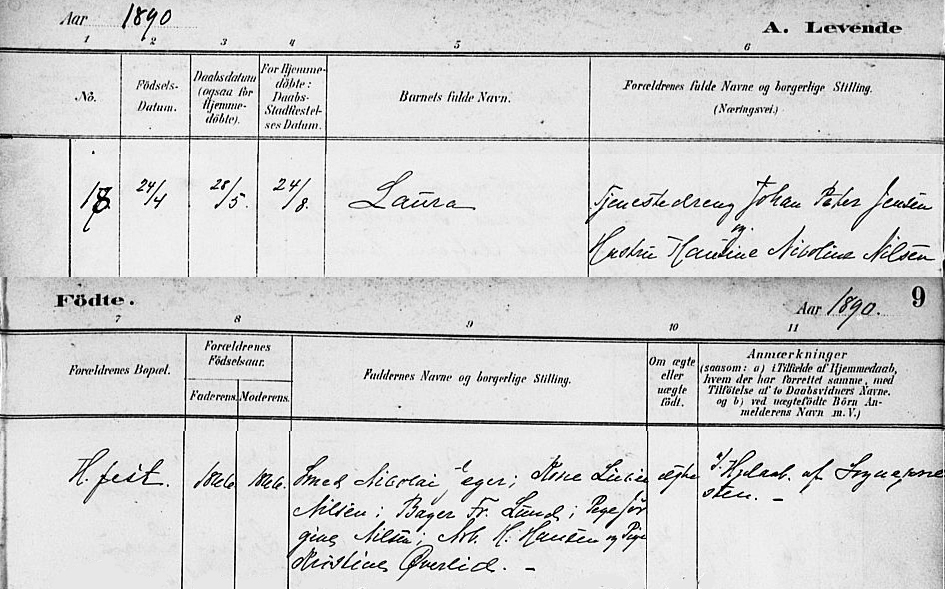 Aar 1890
A. Levende
1 2 3 4 5 6
No.
Födsels-
Datum.
Daabsdatum
(ogsaa for
Hjemme-
döbte).
For Hjemme-
döbte:
Daabs-
Stadfæstel-
ses Datum.
Barnets fulde Navn.
Forældrenes fulde Navne og borgerlige Stilling.
(Næringsvei.)
24/4 28/5. 24/8. Laura Tjenestedreng Johan Peter Jensen
og
Hustru Haurine Nicoline Nilsen
Födte.
Aar 1890.
9
7 8 9 10 11
Forældrenes Bopæl.
Forældrenes
Födselsaar.
Faderens. Moderens.
Faddernes Navne og borgerlige Stilling.
Om ægte
eller
uægte
födt.
Anmærkninger
(saasom: a) i Tilfælde af Hjemmedaab,
hvem der har forrettet samme, med
Tilföielse af to Daabsvidners Navne.
og b) ved uægtefödte Börn An-
melderens Navn m. V.)
H.fest. 1866 1866. Smed Nicolai Kone
Nilsen; Bager Fr. Lund; Pige Jør
gine Nilsen; Arb. H. Hansen og Pige
Kristine Øverlid. —
ægte
Hjdaab. af Sognepræ
sten. —